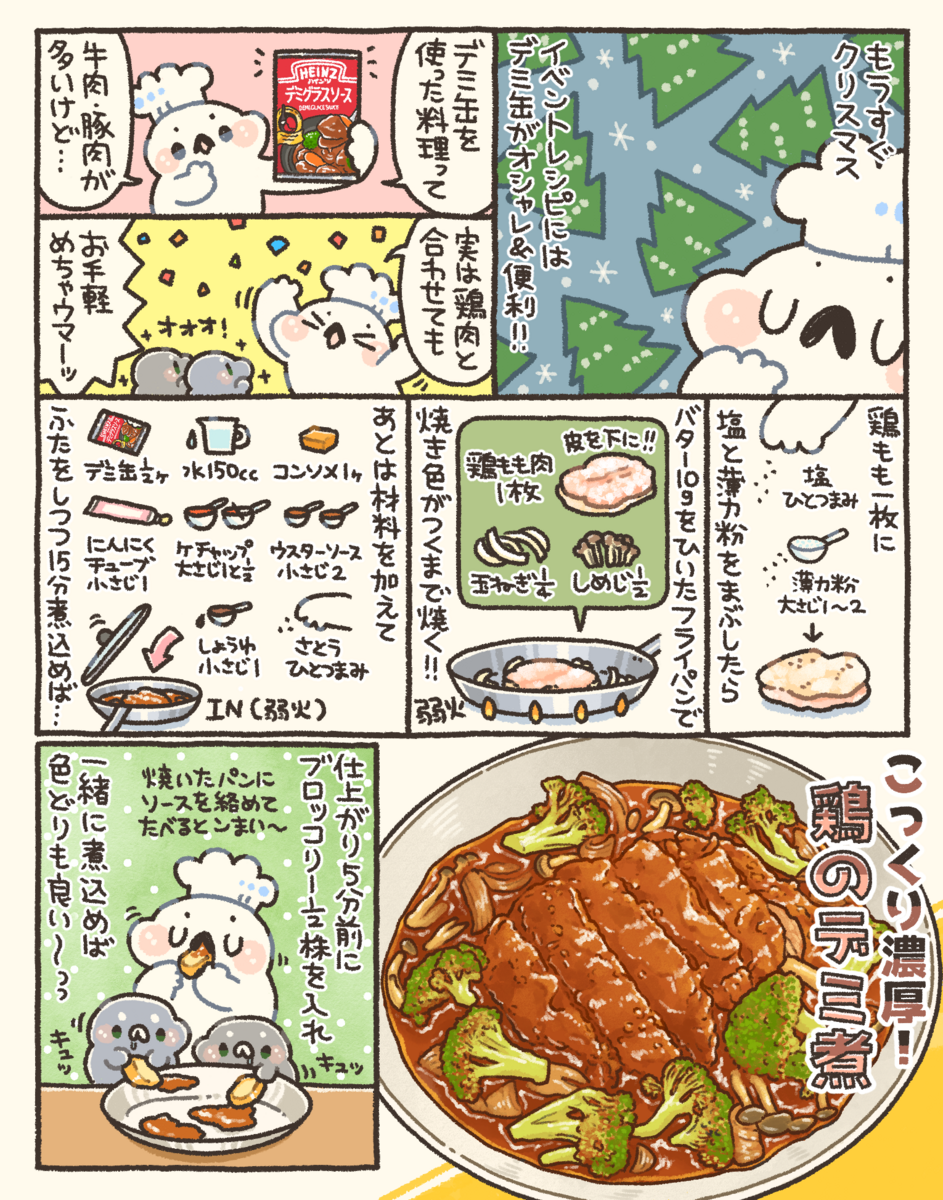 もうすぐ
クリスマス
イベントレシピには
デミ缶がオシャレ&便利!!
デミ缶を
使った料理って
HEINZ
ハインツ
デミグラスソース
DEMIGLACE SAUCE
牛肉・豚肉が
多いけど…
実は鶏肉と
合わせても
オオオ!
お手軽
めちゃウマーッ
鶏もも一枚に
塩と薄力粉をまぶしたら
塩
ひとつまみ
薄力粉
大さじ1〜2
バター10gをひいたフライパンで
皮を下に!!
鶏もも肉
1枚
玉ねぎ1/4
しめじ1/2
焼き色がつくまで焼く!!
弱火
あとは材料を加えて
コンソメ1ヶ
水150cc
デミ缶1/2ヶ
ウスターソース
小さじ2
ケチャップ
大さじ1と1/2
にんにく
チューブ
小さじ1
さとう
ひとつまみ
しょうゆ
小さじ1
IN(弱火)
ふたをしつつ15分煮込めば…
こっくり濃厚!
鶏のデミ煮
仕上がり5分前に
ブロッコリー1/2株を入れ
一緒に煮込めば
色どりも良い〜っっ
焼いたパンに
ソースを絡めて
たべるとンまい〜
キュッ
キュッ